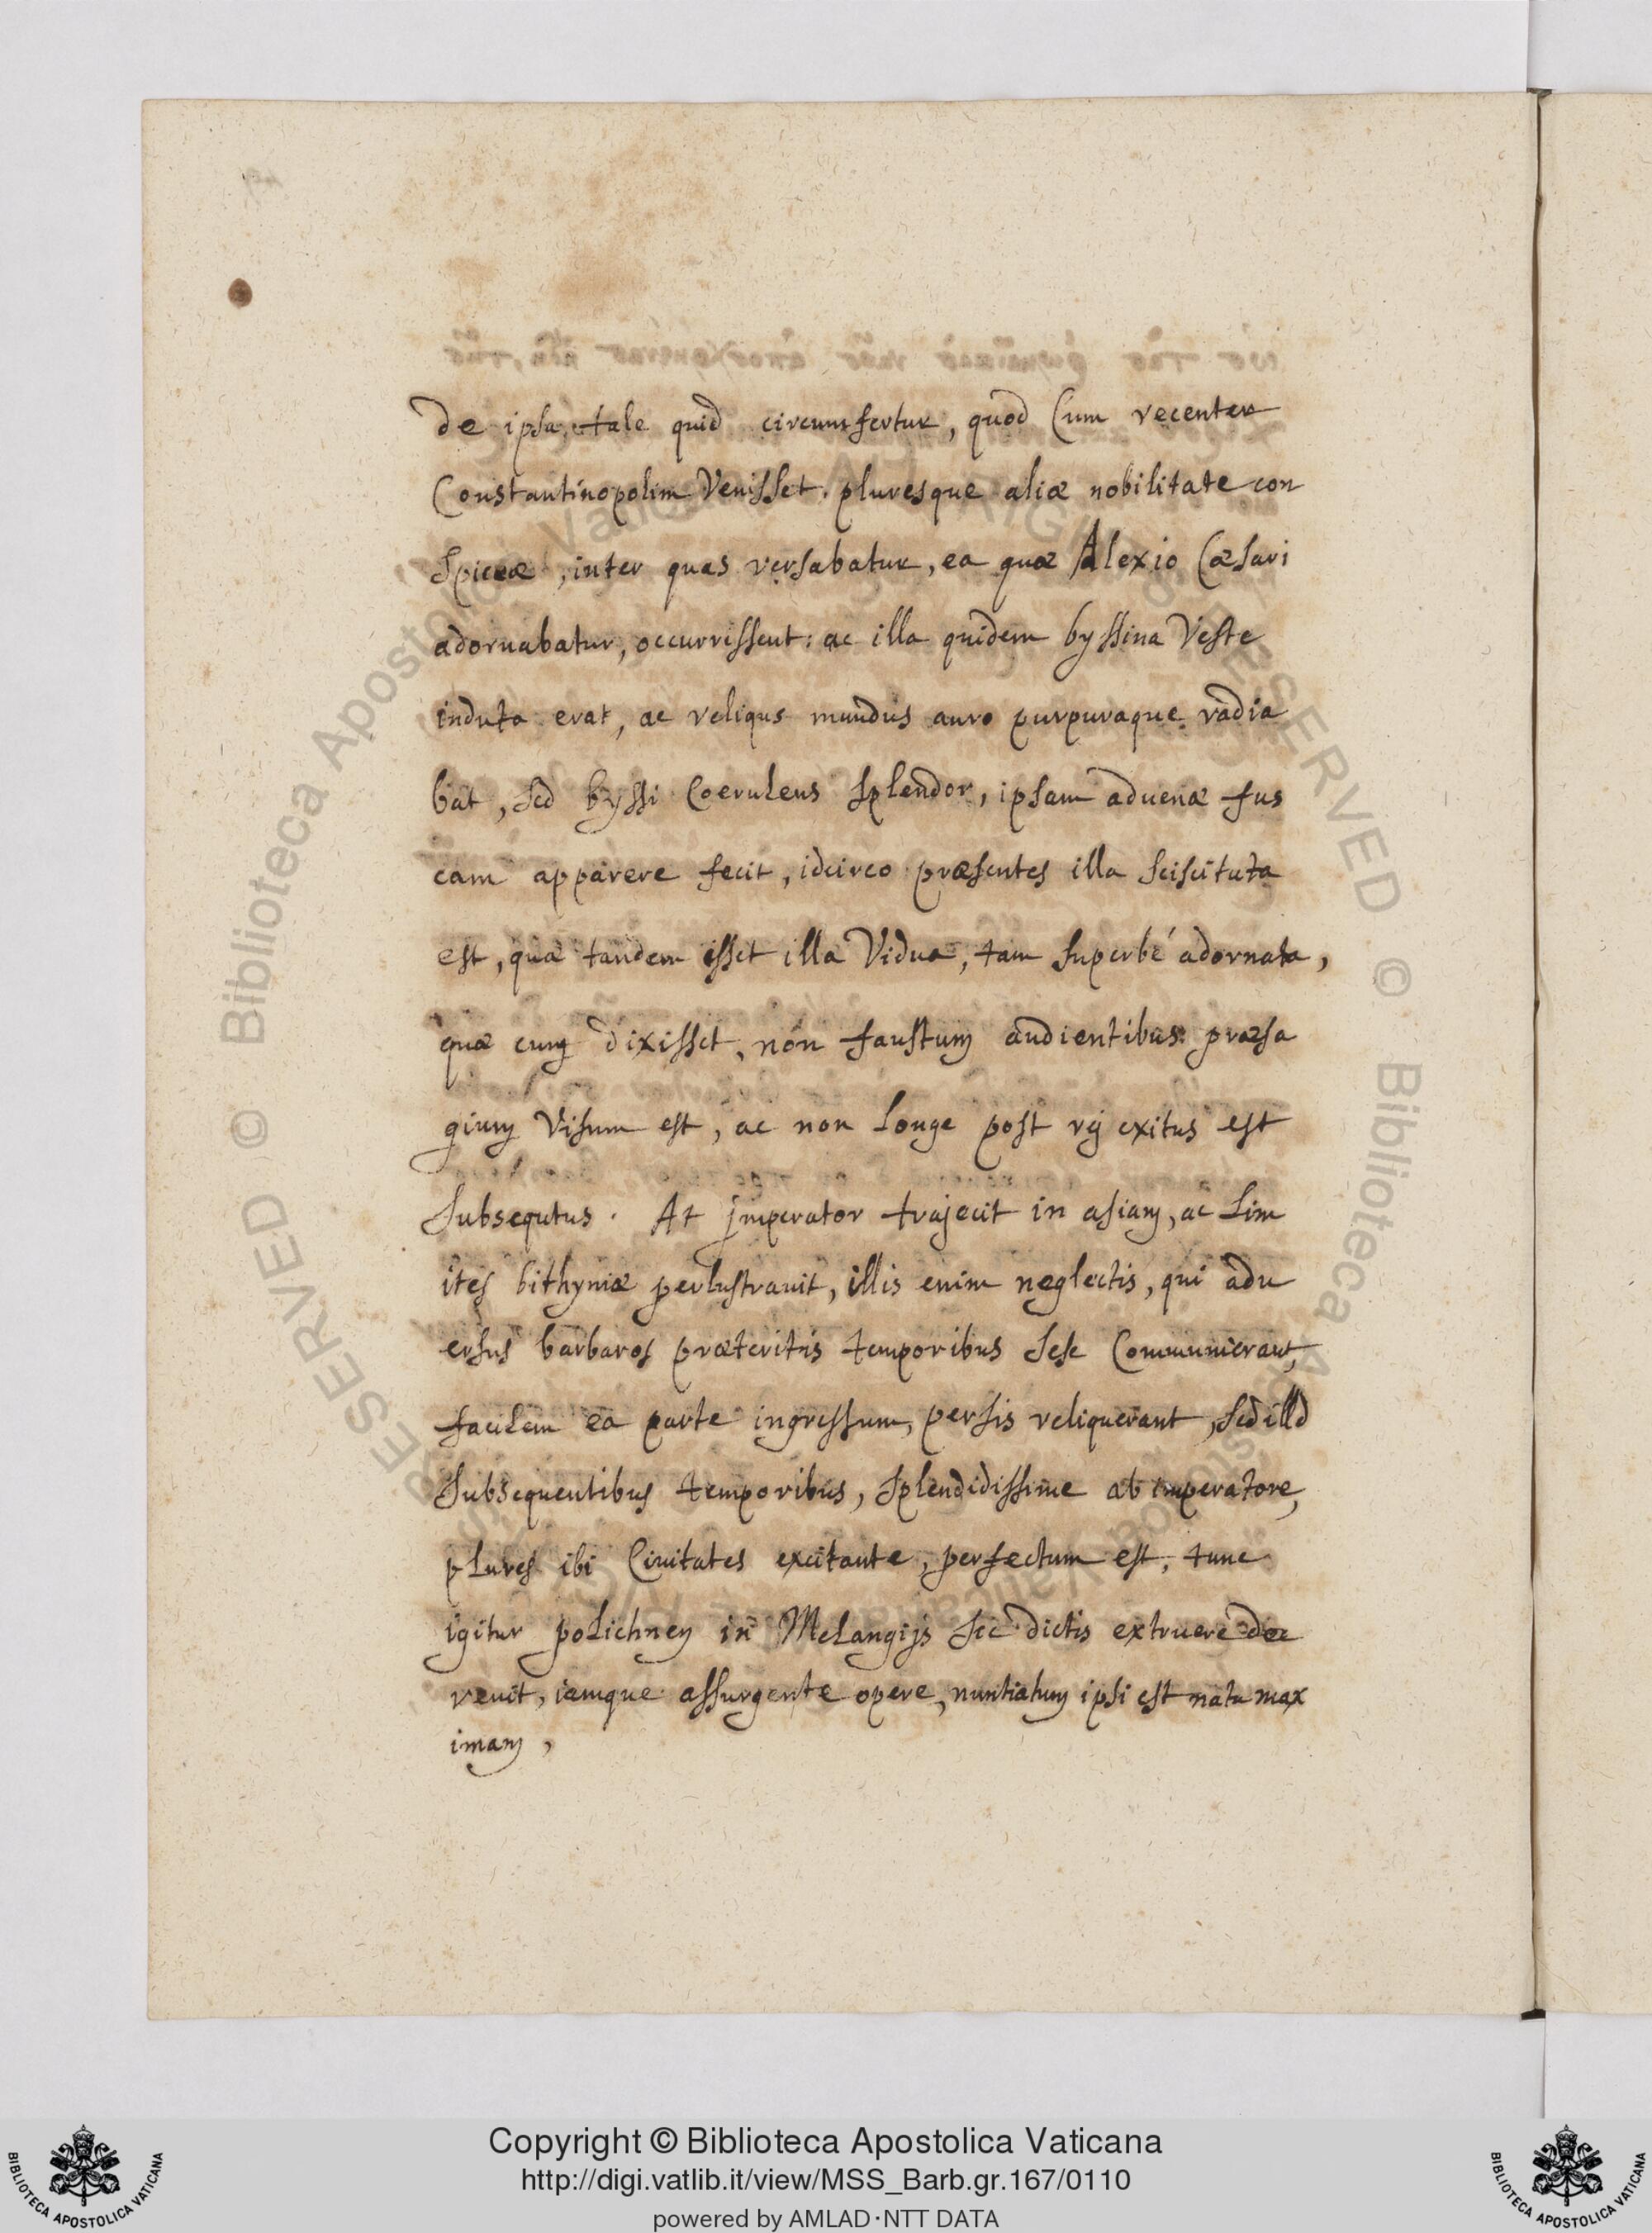 de ipsa, tale quid circumfertur, quod Cum recenter
Constantinopolim Venisset, pluresque aliæ nobilitate con
spicuæ, inter quas versabatur, ea quæ Alexio Cæsari
adornabatur, occurrissent: ac illa quidem byssina Veste
induta erat, ac reliqus mundus auro purpuraque radia
bat, sed byssi Coeruleus splendor, ipsam aduenæ fus
cam apparere fecit, idcirco præsentes illa sciscituta
est, quæ tandem esset illa Vidua, tam superbé adornata,
quæ cum dixisset, non faustum audientibus præsa
gium Visum est, ac non Longe post rej exitus est
subsequtus. At jmperator trajecit in asiam, ac Lim
ites bithyniæ perlustrauit, illis enim neglectis, qui adu
ersus barbaros præteritis temporibus sese Communierant,
facilem ea parte ingressum, persis reliquerant, sed illd
subsequentibus temporibus, splendidissime ab imperatore,
plures ibi Ciuitates excitante, perfectum est, tunc
igitur polichnen in Melangijs sic dictis extruere dec
reuit, iamque assurgente opere, nuntiatum ipsi est natu max
imam,
Copyright © Biblioteca Apostolica Vaticana
http://digi.vatlib.it/view/MSS_Barb.gr.167/0110
powered by AMLAD·NTT DATA
BIBLIOTECA APOSTOLICA VATICANA
BIBLIOTECA APOSTOLICA VATICANA